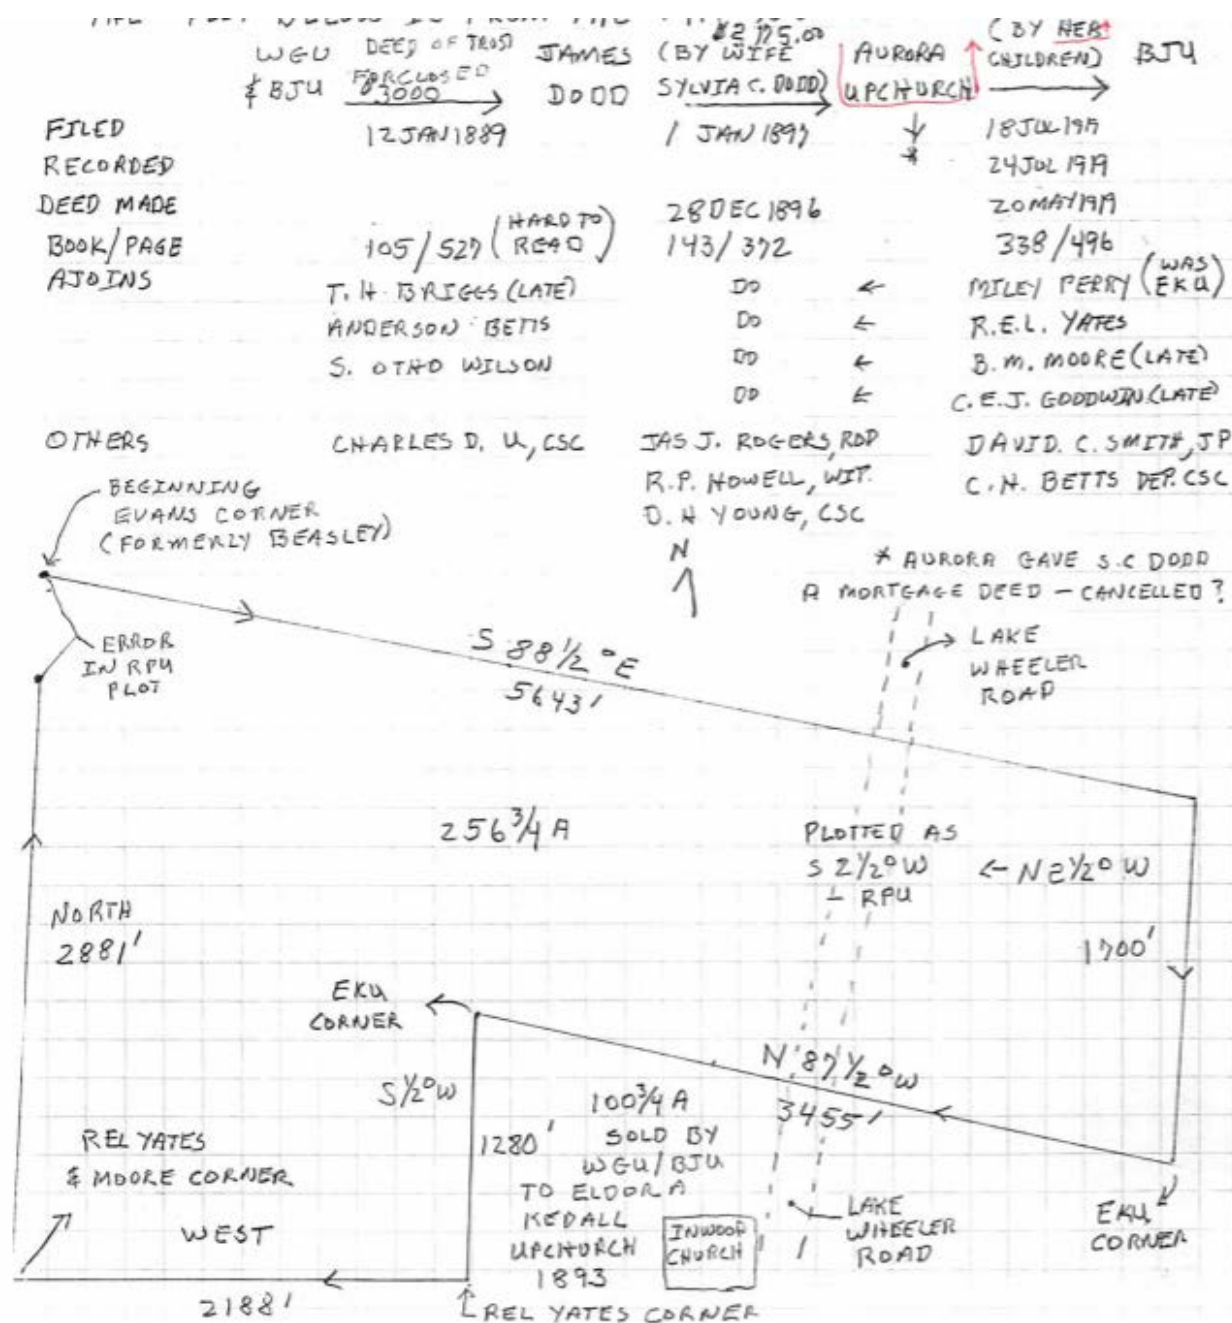 WGU DEED OF TRUST JAMES (BY WIFE AURORA (BY HER BJU
& BJU FORCLOSED DODD SYLVIA C. DODD) UPCHURCH CHILDREN)
3000
$2175.00
FILED 12 JAN 1889 1 JAN 1897 18 JUL 1919
RECORDED * 24 JUL 1919
DEED MADE 28 DEC 1896 20 MAY 1919
BOOK/PAGE 105/527 (HARD TO READ) 143/372 338/496
AJOINS T. H. BRIGGS (LATE) DO ← MILEY PERRY (WAS EKU)
ANDERSON BETTS DO ← R.E.L. YATES
S. OTHO WILSON DO ← B. M. MOORE (LATE)
DO ← C.E.J. GOODWIN (LATE)
OTHERS CHARLES D. U, CSC JAS J. ROGERS, ROD DAVID. C. SMITH, JP
R.P. HOWELL, WIT. C. N. BETTS DEP. CSC
D. H YOUNG, CSC
BEGINNING
EVANS CORNER
(FORMERLY BEASLEY)
N
* AURORA GAVE S.C DODD
A MORTGAGE DEED - CANCELLED?
ERROR
IN RPU
PLOT
S 88 1/2 ° E
5643'
LAKE
WHEELER
ROAD
256 3/4 A
PLOTTED AS
S 2 1/2 ° W ← N 2 1/2 ° W
- RPU
NORTH
2881'
1700'
EKU
CORNER
N 87 1/2 ° W
3455'
S 1/2 ° W
1280'
100 3/4 A
SOLD BY
WGU/BJU
TO ELDORA
KEDALL
UPCHURCH
1893
REL YATES
& MOORE CORNER
WEST
INWOOD
CHURCH
LAKE
WHEELER
ROAD
EKU
CORNER
2188'
REL YATES CORNER